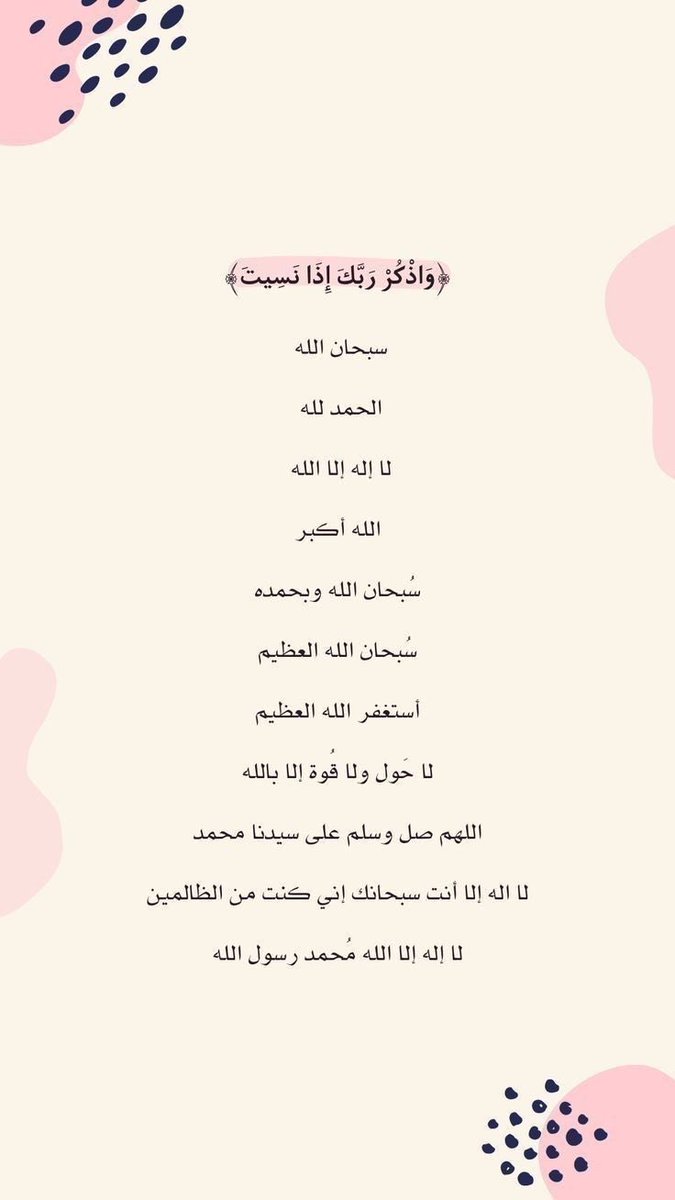 ﴿وَاذْكُرْ رَبَّكَ إِذَا نَسِيتَ﴾
سبحان الله
الحمد لله
لا إله إلا الله
الله أكبر
سُبحان الله وبحمده
سُبحان الله العظيم
أستغفر الله العظيم
لا حَول ولا قُوة إلا بالله
اللهم صل وسلم على سيدنا محمد
لا اله إلا أنت سبحانك إني كنت من الظالمين
لا إله إلا الله مُحمد رسول الله